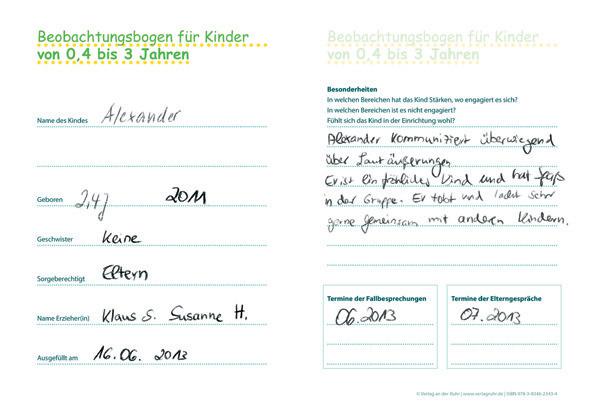 Beobachtungsbogen für Kinder
von 0,4 bis 3 Jahren
Name des Kindes Alexander
Geboren 2,4j 2011
Geschwister Keine
Sorgeberechtigt Eltern
Name Erzieher(in) Klaus S. Susanne H.
Ausgefüllt am 16.06. 2013
Beobachtungsbogen für Kinder
von 0,4 bis 3 Jahren
Besonderheiten
In welchen Bereichen hat das Kind Stärken, wo engagiert es sich?
In welchen Bereichen ist es nicht engagiert?
Fühlt sich das Kind in der Einrichtung wohl?
Alexander kommuniziert überwiegend
über Lautäußerungen
Er ist ein fröhliches Kind und hat Spaß
in der Gruppe. Er tobt und lacht sehr
gerne gemeinsam mit anderen Kindern.
Termine der Fallbesprechungen
06.2013
Termine der Elterngespräche
07.2013
© Verlag an der Ruhr | www.verlagruhr.de | ISBN 978-3-8346-2343-4